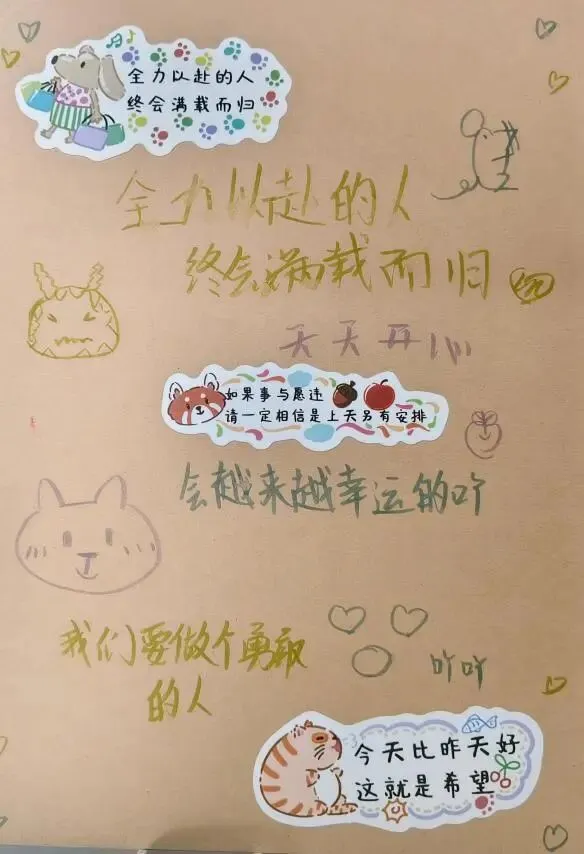 全力以赴的人
终会满载而归
全力以赴的人
终会满载而归
天天开心
如果事与愿违
请一定相信是上天另有安排
会越来越幸运的吖
我们要做个勇敢
的人
吖吖
今天比昨天好
这就是希望